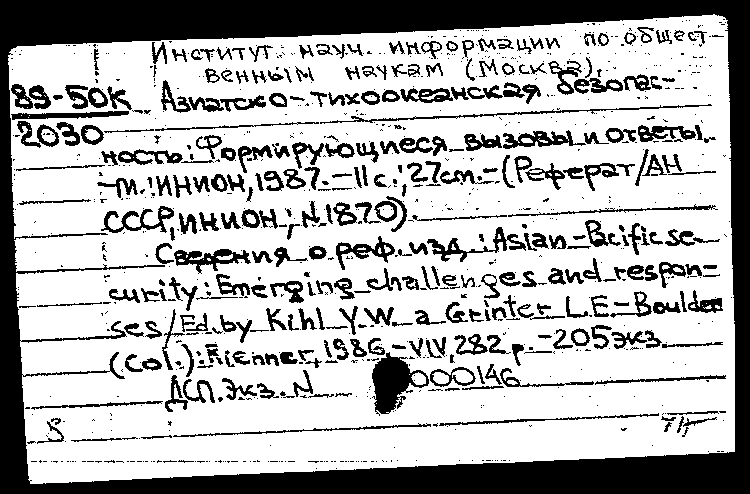 Институт науч. информации по общест-
венным наукам (Москва).
89-50К Азиатско-тихоокеанская безопас-
2030
ность: Формирующиеся вызовы и ответы.
-М.: ИНИОН, 1987.-11с.; 27см.-(Реферат/АН
СССР, ИНИОН; N1870).
Сведения о реф. изд.: Asian-Pacific se-
curity: Emerging challenges and respon-
ses/Ed. by Kihl Y.W. a Grinter L.E.-Boulder
(Col.): Rienner, 1986.-VIV, 282 p.-205экз.
ДСП. Экз. N 000146
8